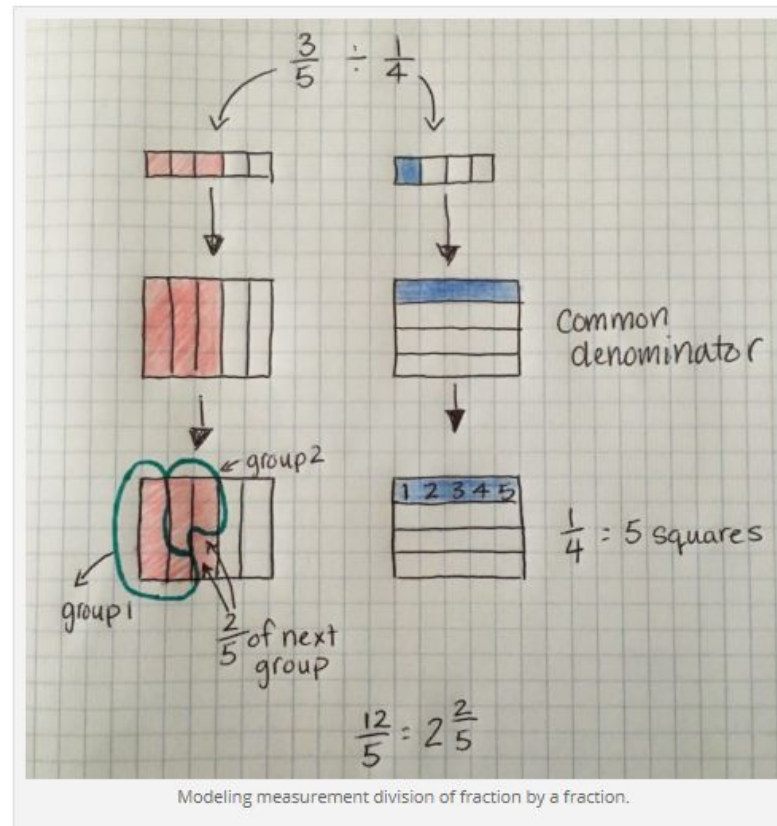 3/5 ÷ 1/4
Common
denominator
group 2
1 2 3 4 5
1/4 = 5 squares
group 1
2/5 of next
group
12/5 = 2 2/5
Modeling measurement division of fraction by a fraction.